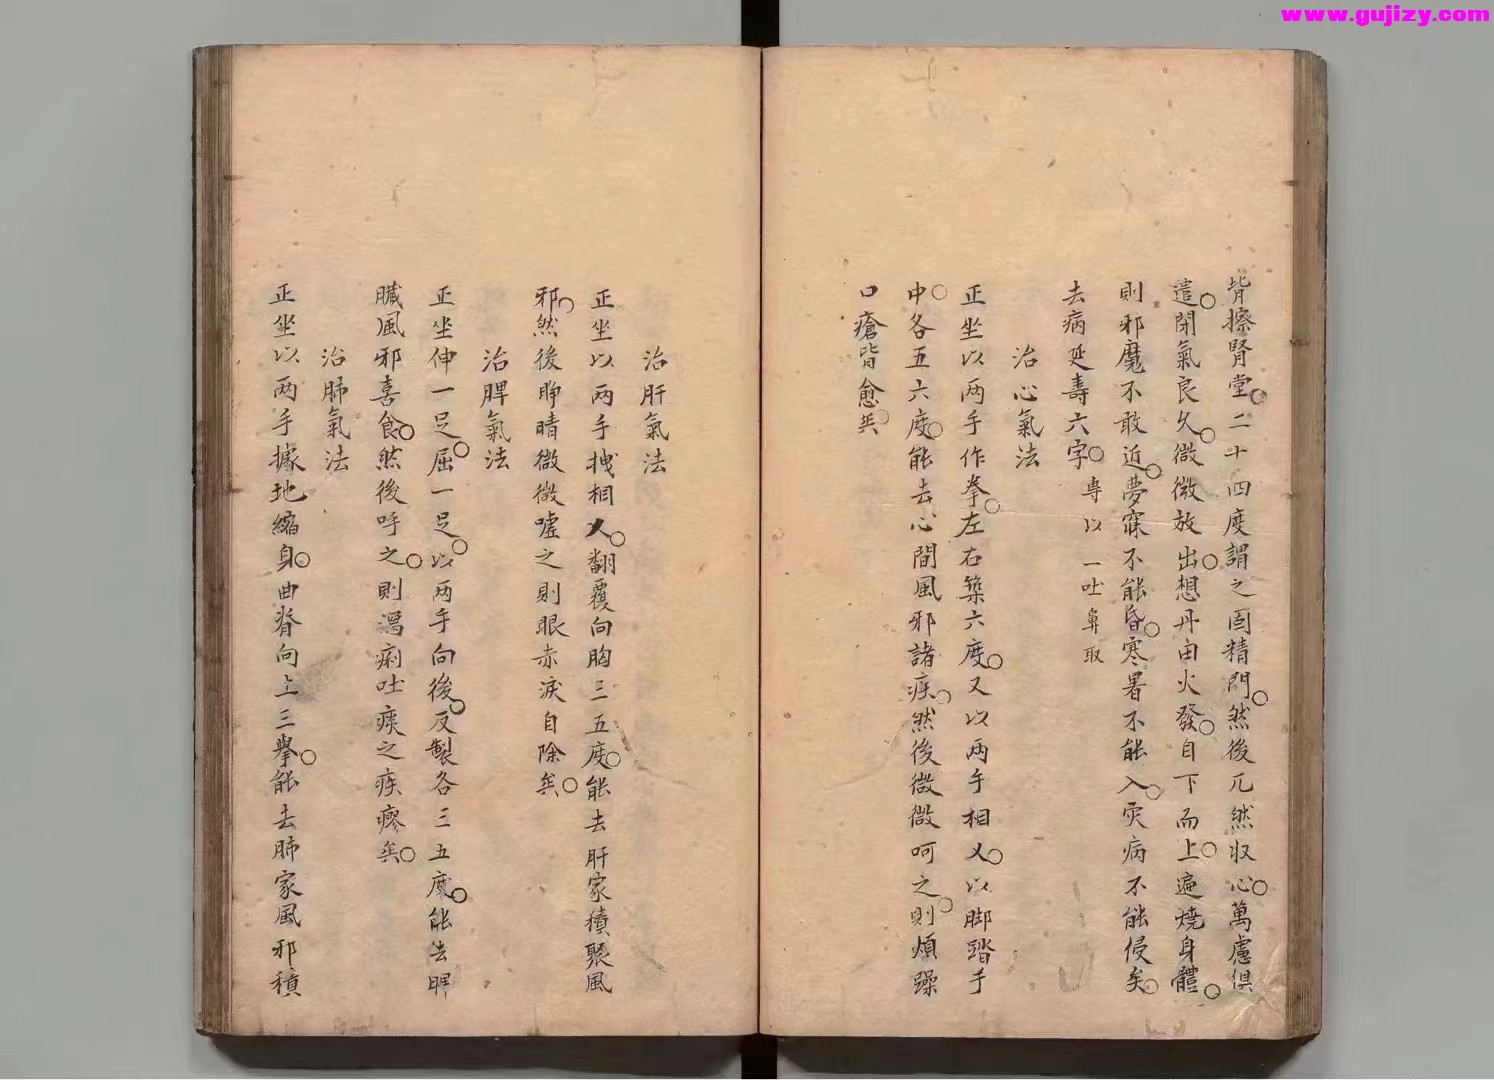 www.gujizy.com
背擦腎堂○二十四度謂之固精門○然後兀然収心○萬慮俱
遣○閉氣良久○微微放出○想丹田火發○自下而上○遍燒身體○
則邪魔不敢近○夢寐不能昏○寒暑不能入○灾病不能侵矣○
去病延壽六字○專以一吐鼻取
治心氣法
正坐以两手作拳○左右築六度○又以两手相乂○以脚踏手
中○各五六度○能去心間風邪諸疾○然後微微呵之○則煩躁
口瘡皆愈矣○
治肝氣法
正坐以两手拽相乂○翻覆向胸三五度○能去肝家積聚風
邪○然後睜睛微微噓之則眼赤淚自除矣○
治脾氣法
正坐伸一足○屈一足○以两手向後○反製各三五度○能去脾
臟風邪喜食○然後呼之○則瀉痢吐痰之疾瘳矣○
治肺氣法
正坐以两手據地縮身○曲脊向上三舉○能去肺家風邪積